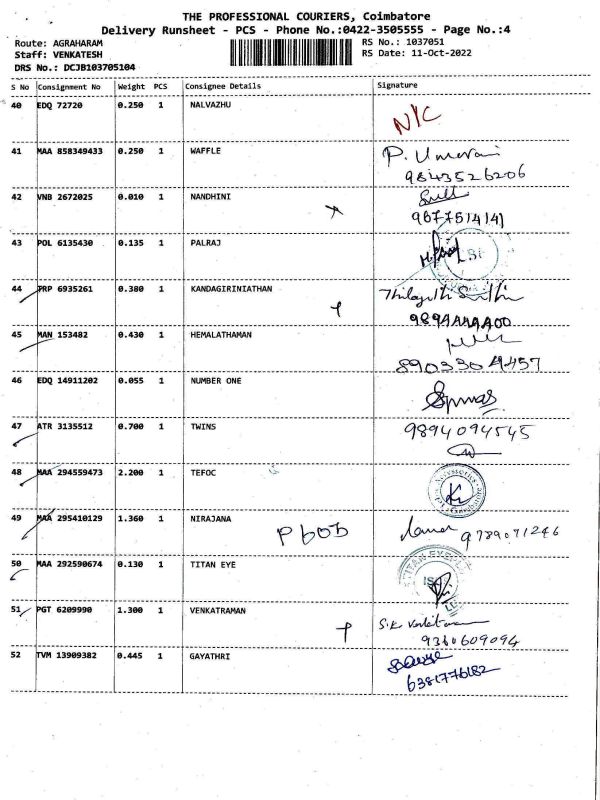 THE PROFESSIONAL COURIERS, Coimbatore
Delivery Runsheet - PCS - Phone No.:0422-3505555 - Page No.:4
Route: AGRAHARAM
RS No.: 1037051
Staff: VENKATESH
RS Date: 11-Oct-2022
DRS No.: DCJB103705104
S No Consignment No Weight PCS Consignee Details Signature
40 EDQ 72720 0.250 1 NALVAZHU
N/C
41 MAA 858349433 0.250 1 WAFFLE P.
9843526206
42 VNB 2672025 0.010 1 NANDHINI
9677514141
43 POL 6135430 0.135 1 PALRAJ
44 PRP 6935261 0.380 1 KANDAGIRINIATHAN
45 MAN 153482 0.430 1 HEMALATHAMAN
8903304457
46 EDQ 14911202 0.055 1 NUMBER ONE
47 ATR 3135512 0.700 1 TWINS 9894094545
48 MAA 294559473 2.200 1 TEFOC
49 MAA 295410129 1.360 1 NIRAJANA
9789071246
50 MAA 292590674 0.130 1 TITAN EYE
TITAN EYE
51 PGT 6209990 1.300 1 VENKATRAMAN S.K
9360609094
52 TVM 13909382 0.445 1 GAYATHRI
6381776182